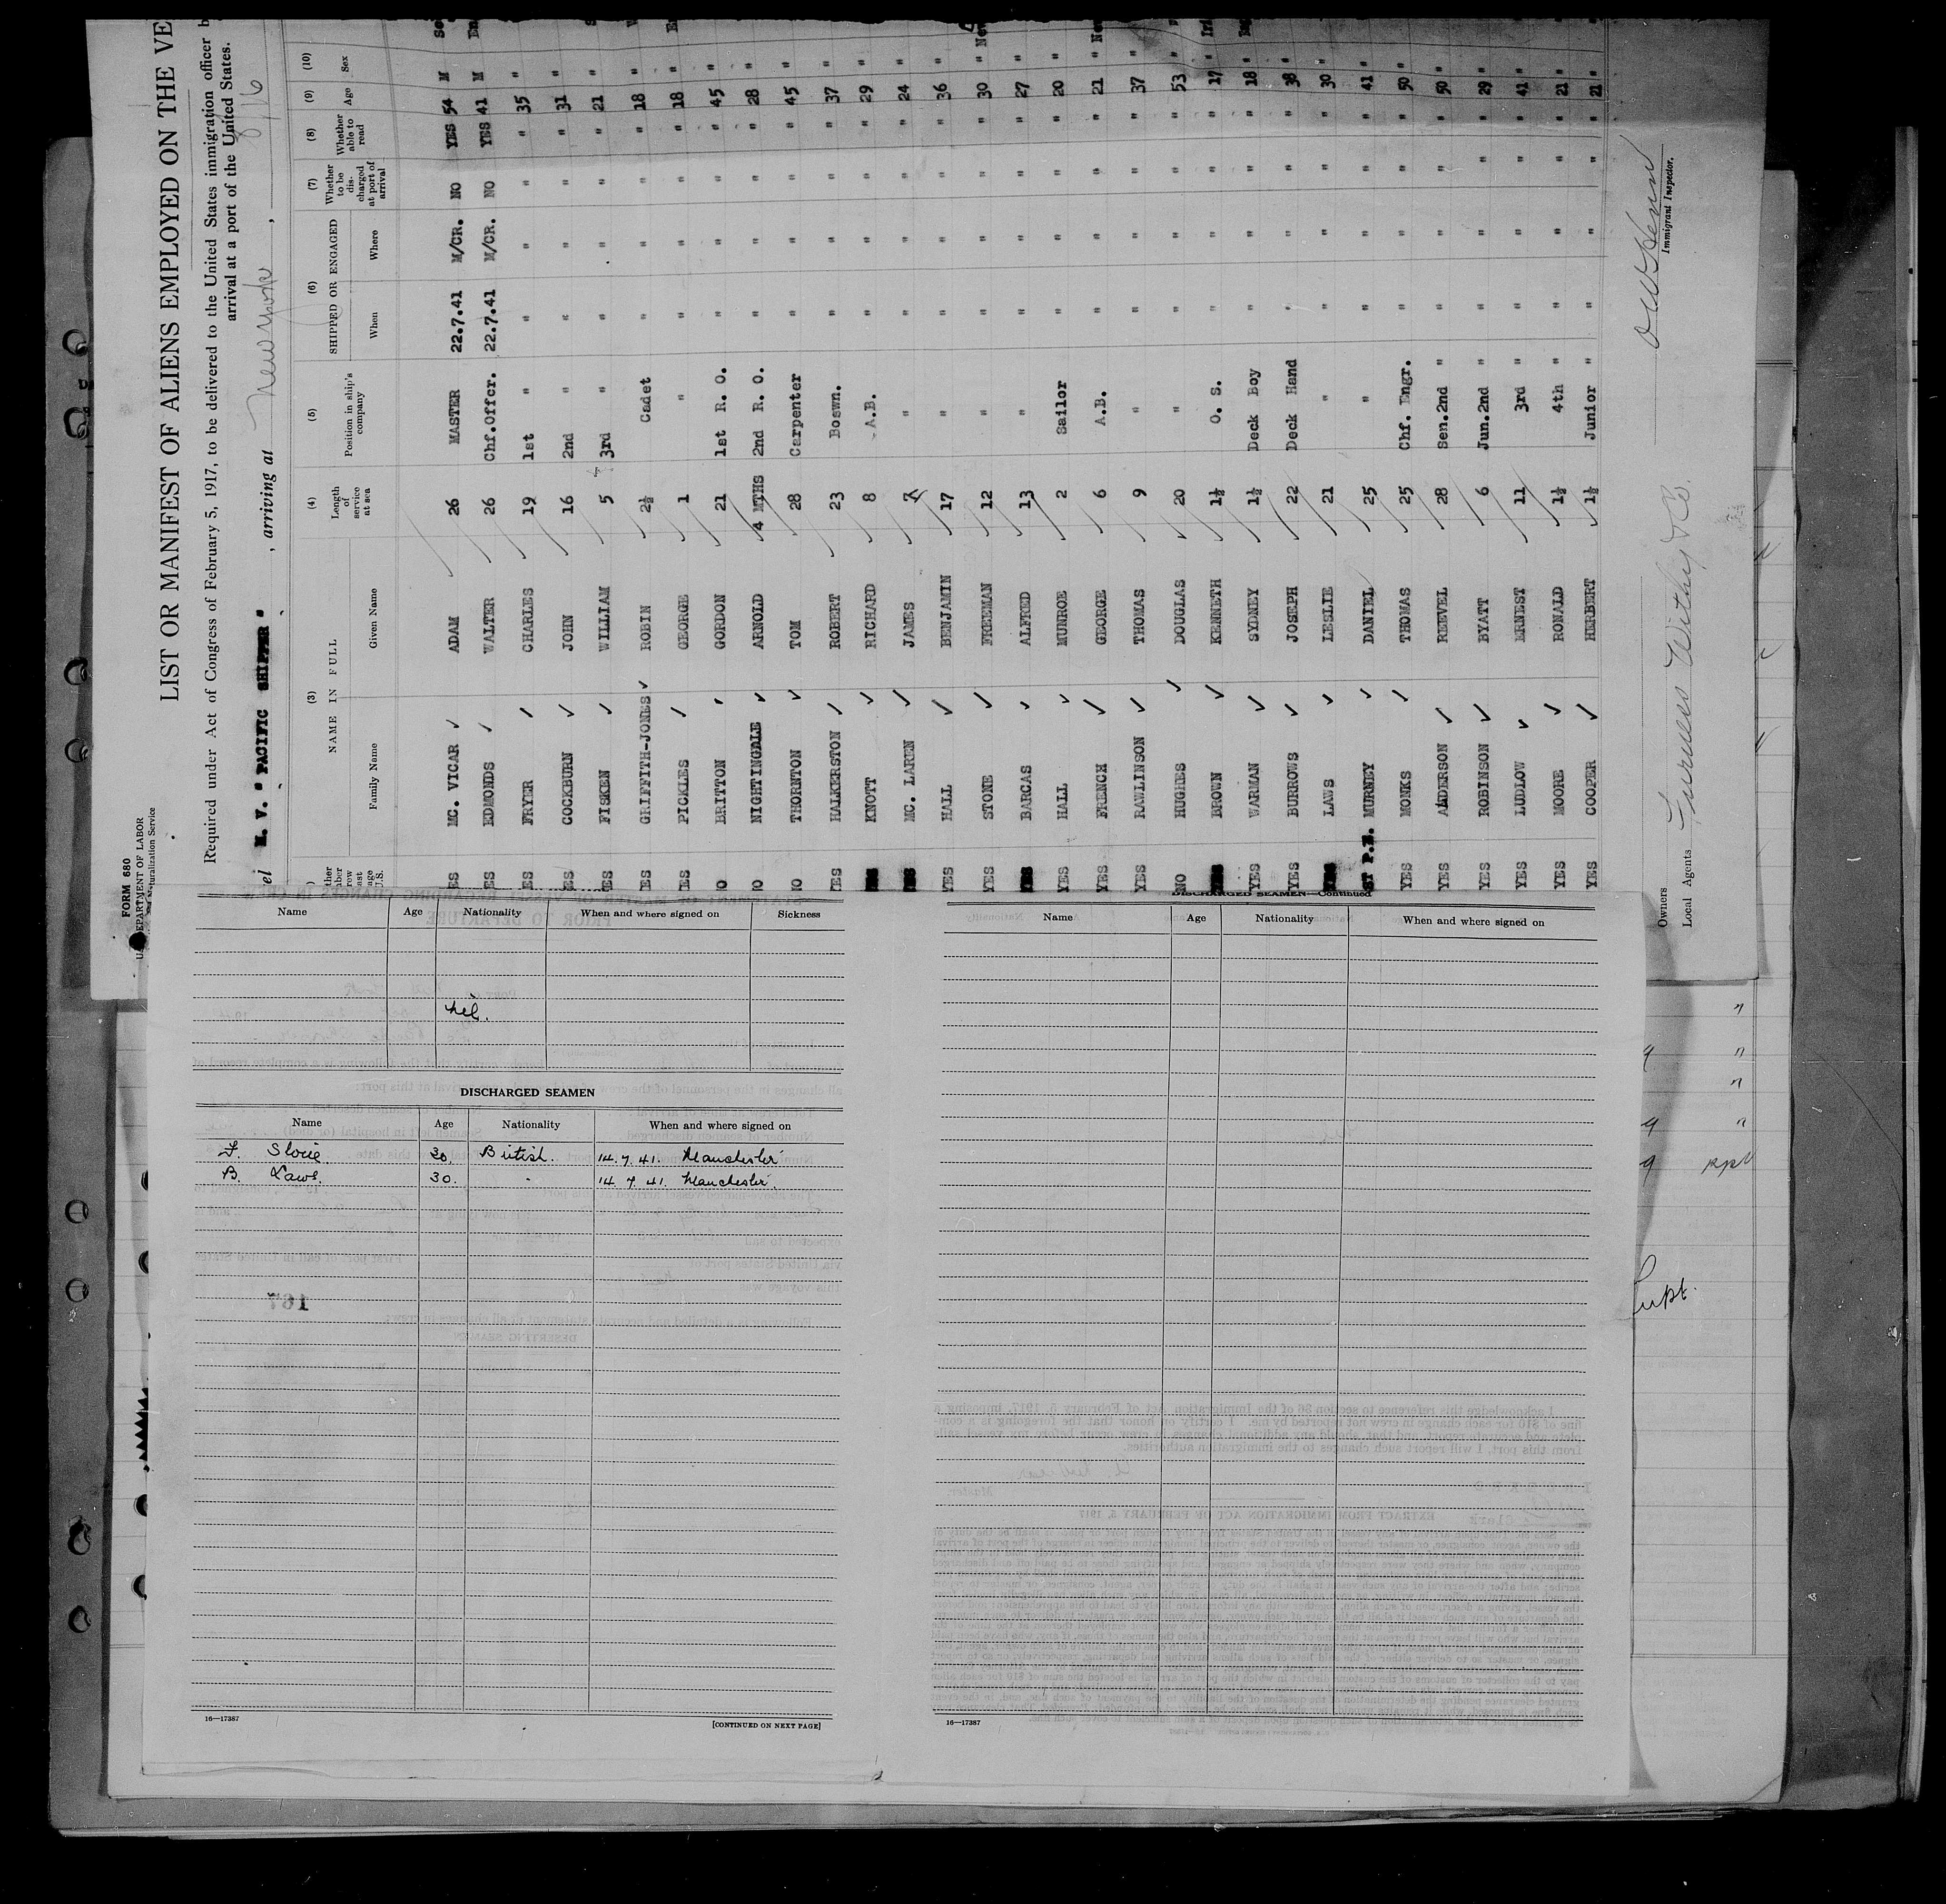 FORM 680
U. S. DEPARTMENT OF LABOR
Naturalization Service
LIST OR MANIFEST OF ALIENS EMPLOYED ON THE VE
Required under Act of Congress of February 5, 1917, to be delivered to the United States immigration officer b
arrival at a port of the United States.
el M. V. "PACIFIC SHIPPER" , arriving at New York ,
(3) (4) (5) (6) (7) (8) (9) (10)
NAME IN FULL Length of service at sea Position in ship's company SHIPPED OR ENGAGED Whether to be discharged at port of arrival Whether able to read Age Sex
Family Name Given Name When Where
ES MC. VICAR ADAM 26 MASTER 22.7.41 M/CR. NO YES 54 M
ES EDMONDS WALTER 26 Chf.Offcr. 22.7.41 M/CR. NO YES 41 M
ES FRYER CHARLES 19 1st " " " " " 35 "
ES COCKBURN JOHN 16 2nd " " " " " 31 "
ES FISKEN WILLIAM 5 3rd " " " " " 21 "
ES GRIFFITH-JONES ROBIN 2½ Cadet " " " " 18 "
ES PICKLES GEORGE 1 " " " " " 18 "
NO BRITTON GORDON 21 1st R. O. " " " " 45 "
NO NIGHTINGALE ARNOLD 4 MTHS 2nd R. O. " " " " 28 "
NO THORNTON TOM 28 Carpenter " " " " 45 "
YES HALKERSTON ROBERT 23 Boswn. " " " " 37 "
YES KNOTT RICHARD 8 A.B. " " " " 29 "
YES MC. LAREN JAMES 7 " " " " " 24 "
YES HALL BENJAMIN 17 " " " " " 36 "
YES STONE FREEMAN 12 " " " " " 30 "
YES BARCAS ALFRED 13 " " " " " 27 "
YES HALL MUNROE 2 Sailor " " " " 20 "
YES FRENCH GEORGE 6 A.B. " " " " 21 "
YES RAWLINSON THOMAS 9 " " " " " 37 "
NO HUGHES DOUGLAS 20 " " " " " 53 "
YES BROWN KENNETH 1½ O. S. " " " " 17 "
YES WARMAN SYDNEY 1½ Deck Boy " " " " 18 "
YES BURROWS JOSEPH 22 Deck Hand " " " " 38 "
YES LAWS LESLIE 21 " " " " " 30 "
ST P.E. MURNEY DANIEL 25 " " " " " 41 "
YES MONKS THOMAS 25 Chf. Engr. " " " " 50 "
YES ANDERSON REEVEL 28 Sen.2nd " " " " " 50 "
YES ROBINSON BYATT 6 Jun.2nd " " " " " 29 "
YES LUDLOW ERNEST 11 3rd " " " " " 41 "
YES MOORE RONALD 1½ 4th " " " " " 21 "
YES COOPER HERBERT 1½ Junior " " " " " 21 "
Immigrant Inspector.
Owners
Local Agents Furness Withy & Co.
Name Age Nationality When and where signed on Sickness
Nil.
DISCHARGED SEAMEN
Name Age Nationality When and where signed on
30. British. 14.7.41. Manchester
B. Laws. 30. " 14.7.41. Manchester.
16—17387 [CONTINUED ON NEXT PAGE]
DISCHARGED SEAMEN—Continued
Name Age Nationality When and where signed on
16—17387
Supt.